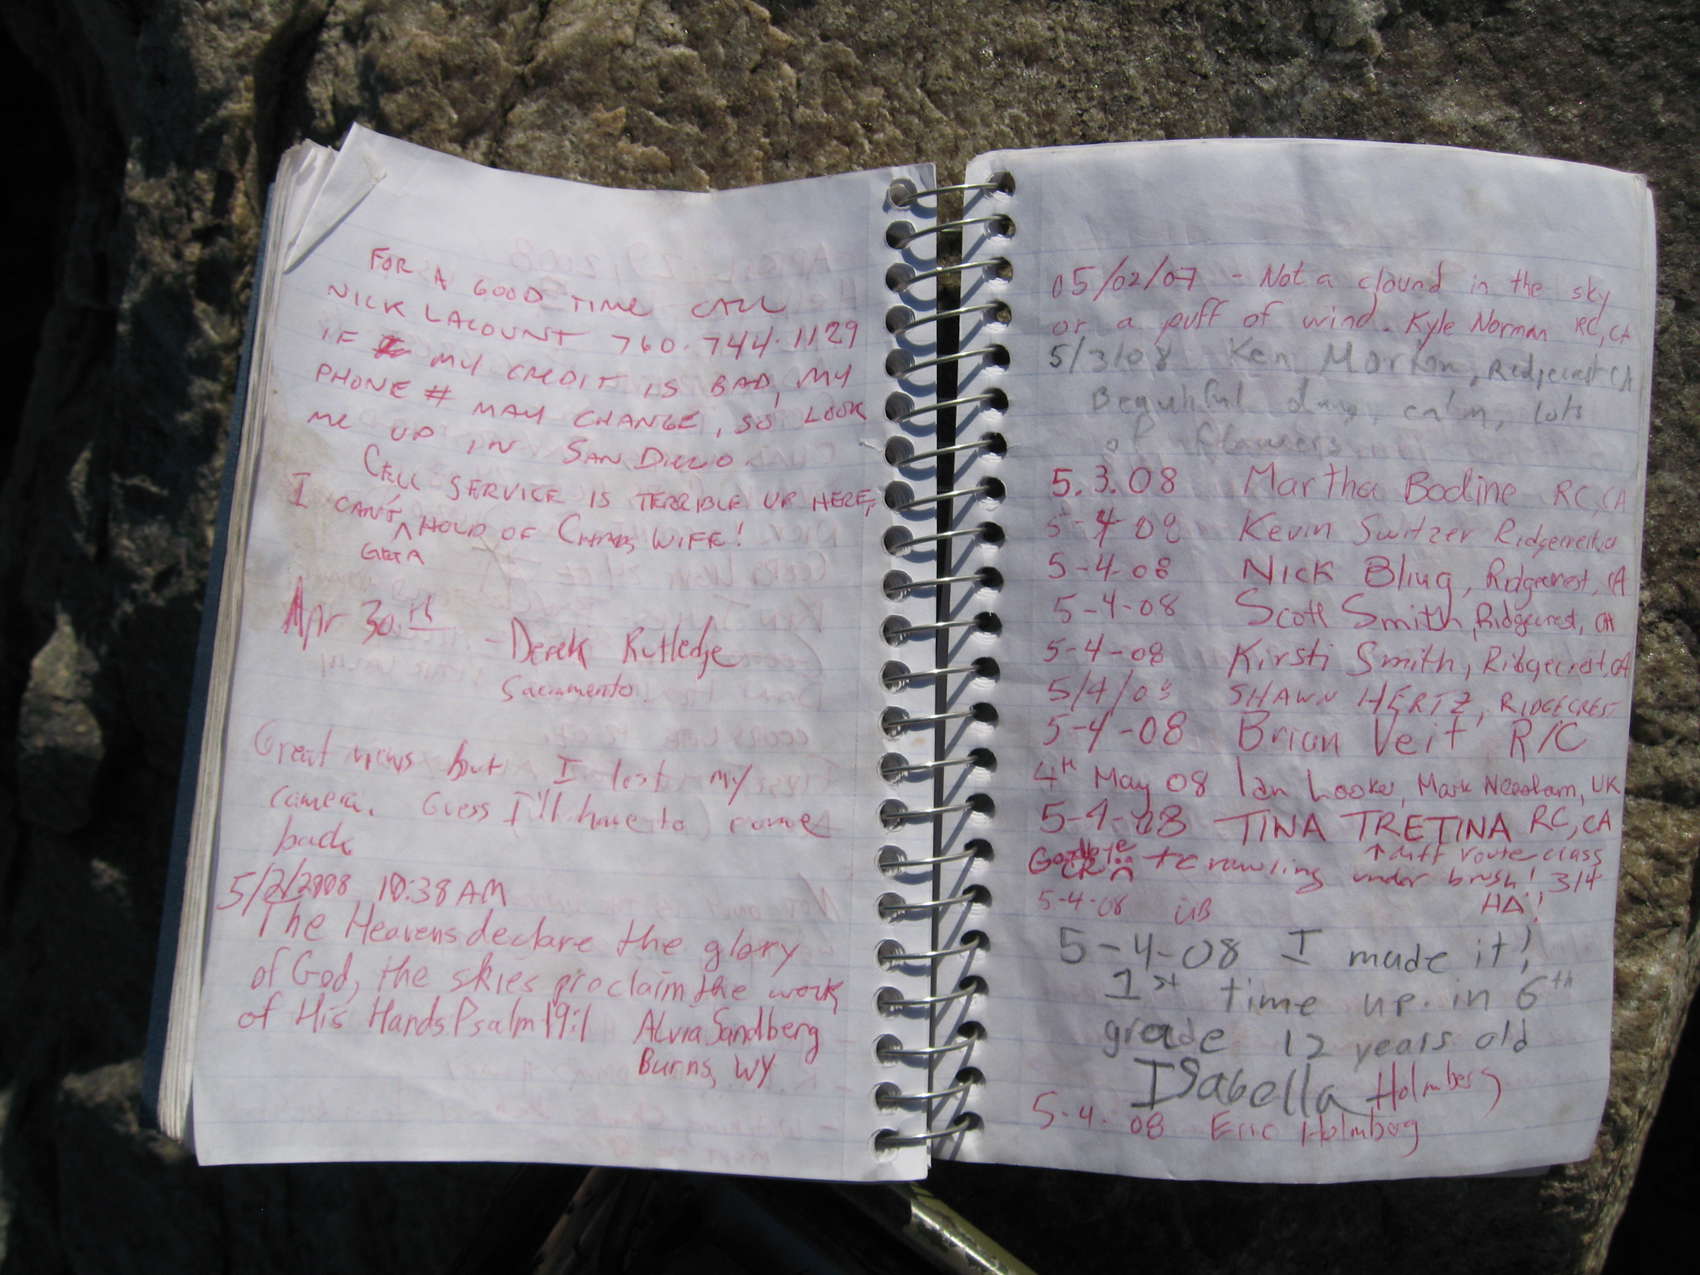 FOR A GOOD TIME CALL
NICK LACOUNT 760.744.1129
IF MY CREDIT IS BAD, MY
PHONE # MAY CHANGE, SO LOOK
ME UP IN SAN DIEGO.
CELL SERVICE IS TERRIBLE UP HERE,
I CAN'T HOLD OF WIFE!
GET A
Apr 30th - Derek Rutledge
Sacramento
Great views but I lost my
camera. Guess I'll have to come
back
5/2/2008, 10:38 AM
The Heavens declare the glory
of God, the skies proclaim the work
of His Hands Psalm 19:1 Alvia Sandberg
Burns, WY
05/02/07 - Not a clound in the sky
or a puff of wind. Kyle Norman RC, CA
5/3/08 Ken Morton, Redgecrest CA
Beautiful day, calm, lots
of flowers
5.3.08 Martha Bodine RC, CA
5-4-08 Kevin Switzer Ridgecrest, CA
5-4-08 Nick Bling, Ridgecrest, CA
5-4-08 Scott Smith, Ridgecrest, CA
5-4-08 Kirsti Smith, Ridgecrest, CA
5/4/08 SHAWN HERTZ, RIDGECREST
5-4-08 Brian Veit R/C
4th May 08 Ian Looker, Mark Needham, UK
5-4-08 TINA TRETINA RC, CA
↑ diff route class
crawling under brush! 3/4
5-4-08 HA!
5-4-08 I made it!
1st time up. in 6th
grade 12 years old
Isabella Holmberg
5-4-08 Eric Holmberg